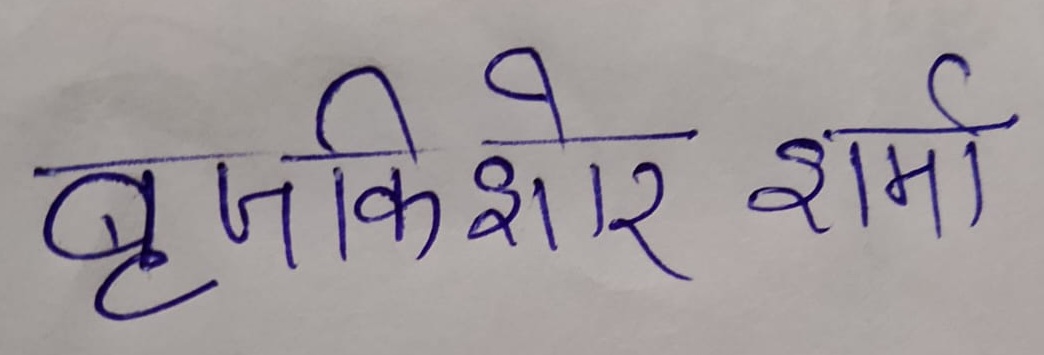 बृजकिशोर शर्मा